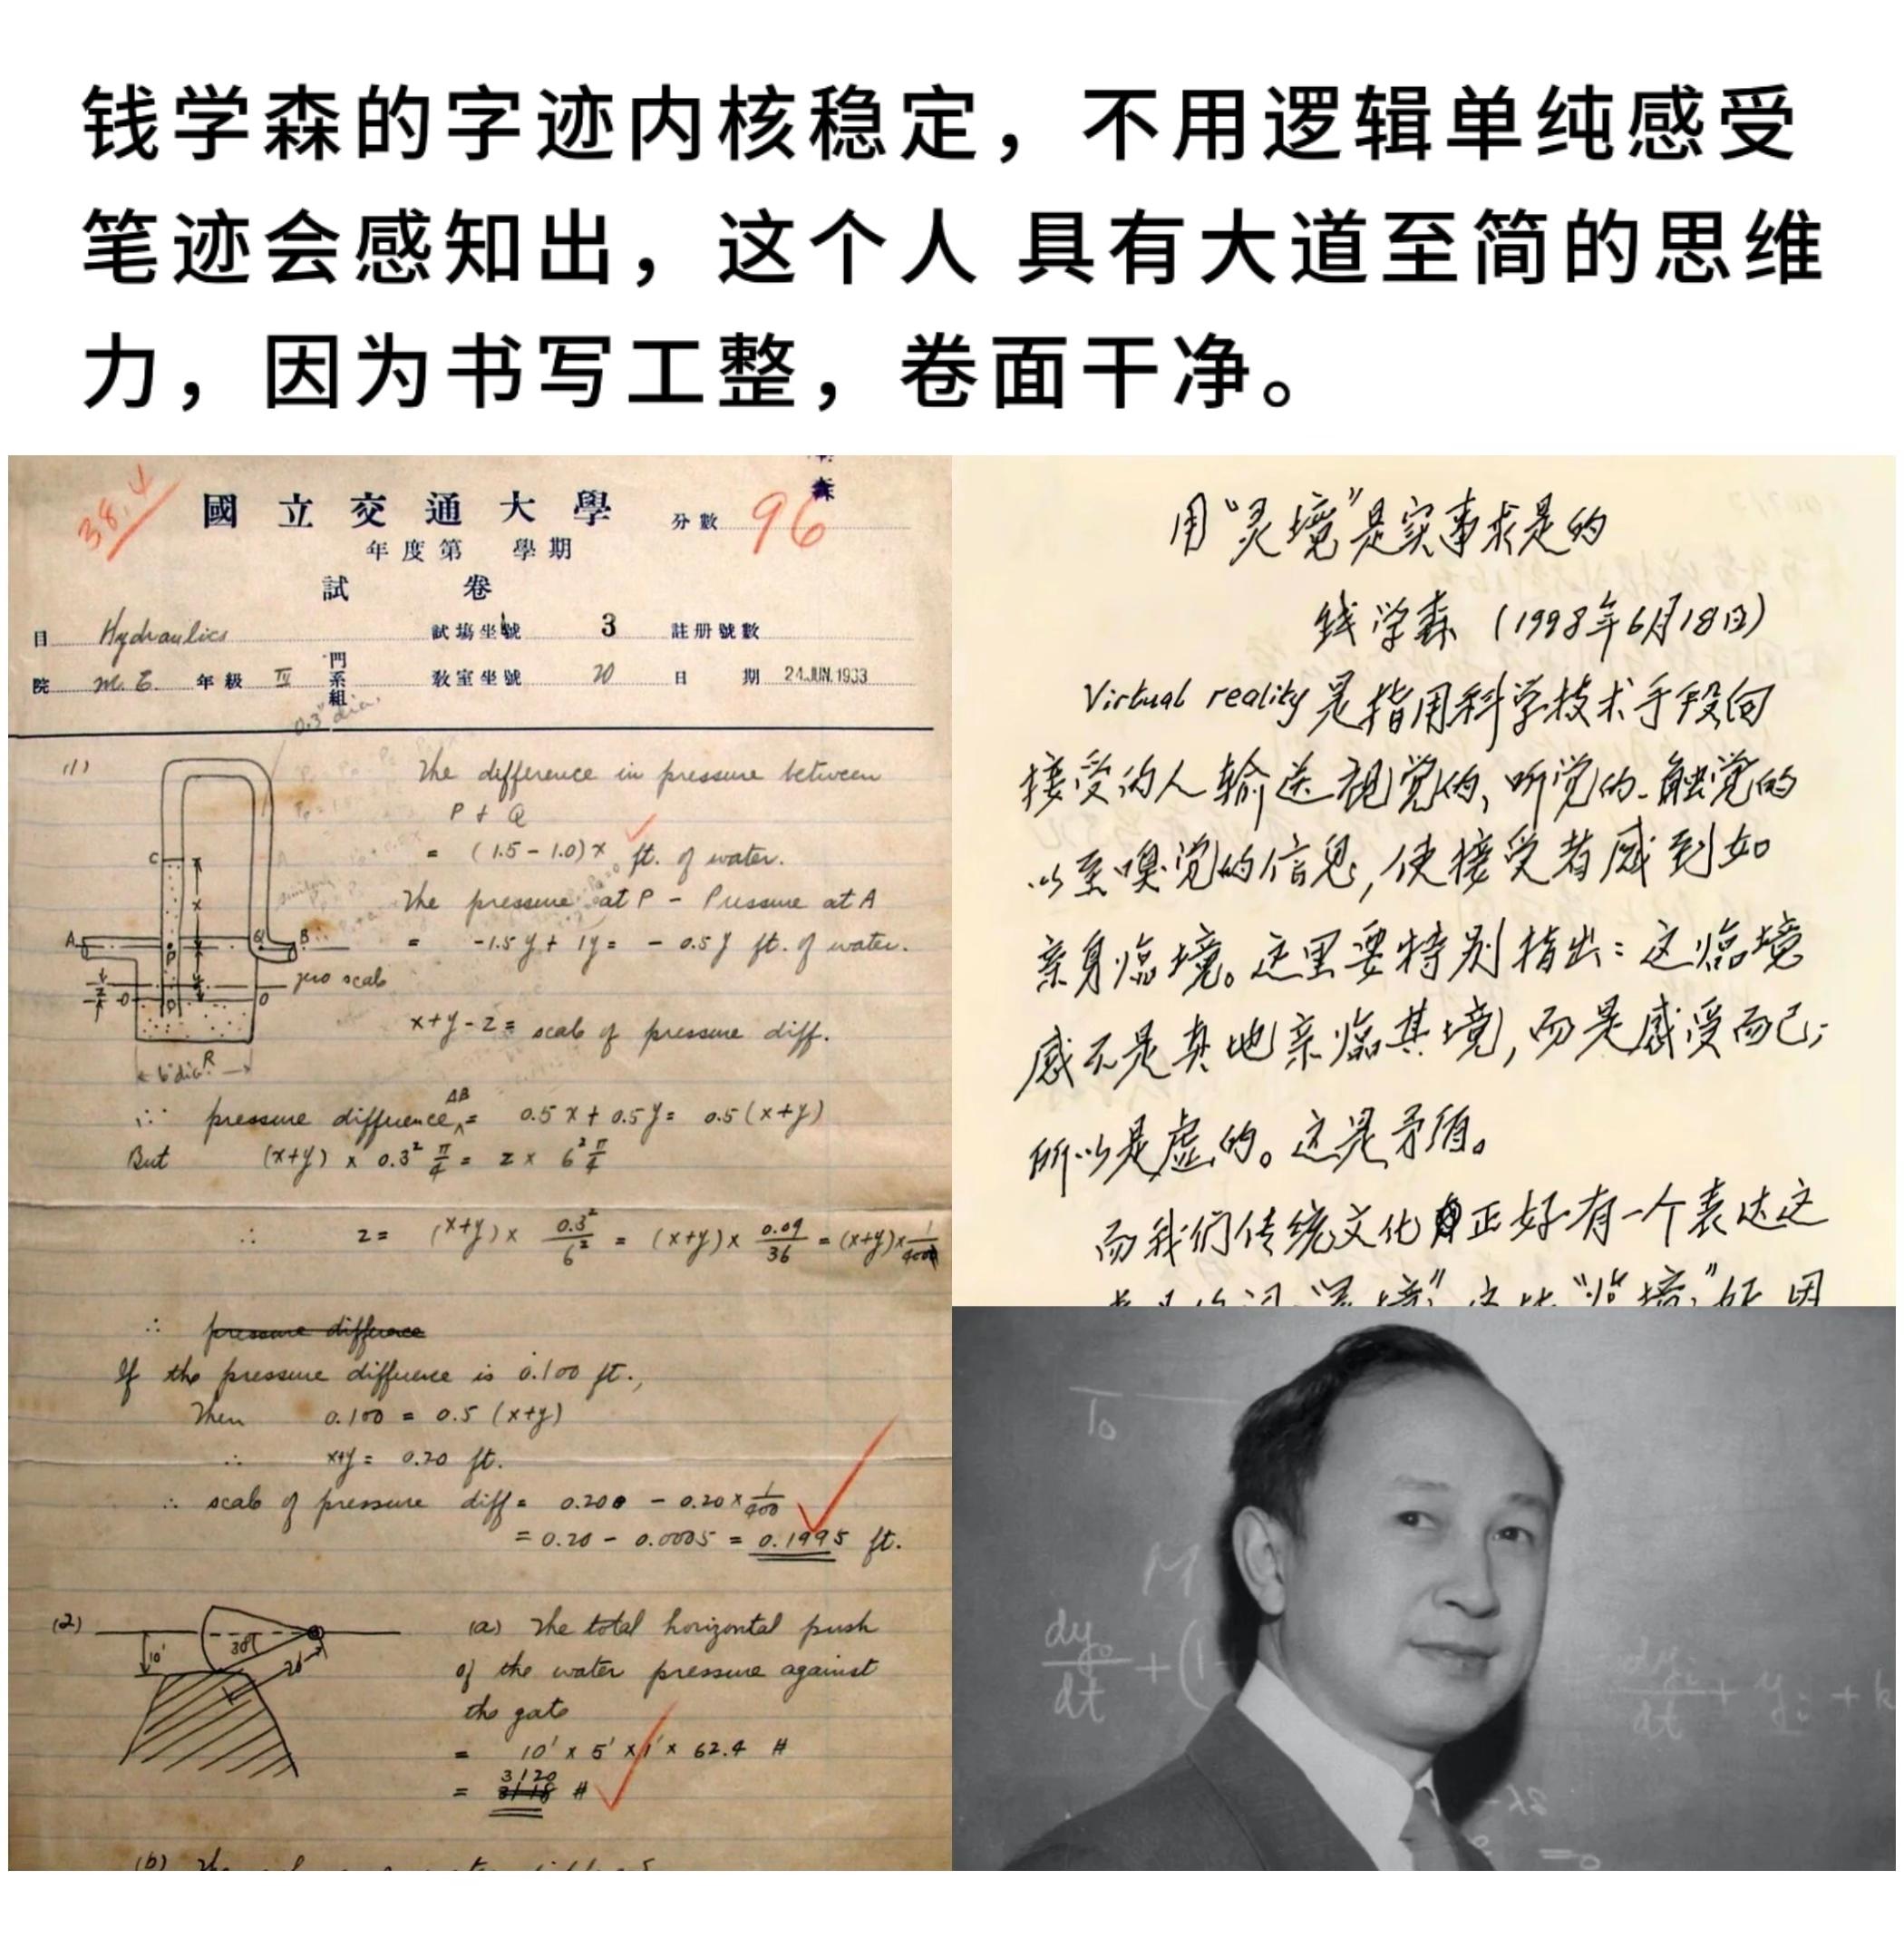 钱学森的字迹内核稳定，不用逻辑单纯感受
笔迹会感知出，这个人 具有大道至简的思维
力，因为书写工整，卷面干净。
38.4
國立交通大學
分數 96
森
年度第 學期
試 卷
目 Hydraulics 試場坐號 3 註册號數
院 M.E. 年級 IV 門系組 教室坐號 20 日期 24.JUN.1933
0.3" dia.
(1)
The difference in pressure between
P + Q
= (1.5 - 1.0)x ft. of water.
The pressure at P - Pressure at A
= -1.5y + 1y = - 0.5y ft. of water.
C
x
A
B
Q
P
zero scale
O
O
x+y-z = scale of pressure diff.
6" dia.
∴ pressure difference AB = 0.5x + 0.5y = 0.5(x+y)
But (x+y) × 0.3² π/4 = z × 6² π/4
∴ z = (x+y) × 0.3²/6² = (x+y) × 0.09/36 = (x+y) × 1/400
∴ pressure difference
If the pressure difference is 0.100 ft.,
Then 0.100 = 0.5 (x+y)
∴ x+y = 0.20 ft.
∴ scale of pressure diff = 0.200 - 0.20 × 1/400
= 0.20 - 0.0005 = 0.1995 ft.
(2)
10'
30°
20'
(a) The total horizontal push
of the water pressure against
the gate
= 10' × 5' × 1' × 62.4 #
3120
= 3118 #
(b) The
用“灵境”是实事求是的
钱学森（1998年6月18日）
Virtual reality是指用科学技术手段向
接受的人输送视觉的、听觉的、触觉的
以至嗅觉的信息，使接受者感到如
亲身临境。这里要特别指出：这临境
感不是真地亲临其境，而是感受而已；
所以是虚的。这是矛盾。
而我们传统文化正好有一个表达这
“灵境”，这比“临境”好，因
T₀
M
dy₀/dt + (1-
dyᵢ/dt + yᵢ + k